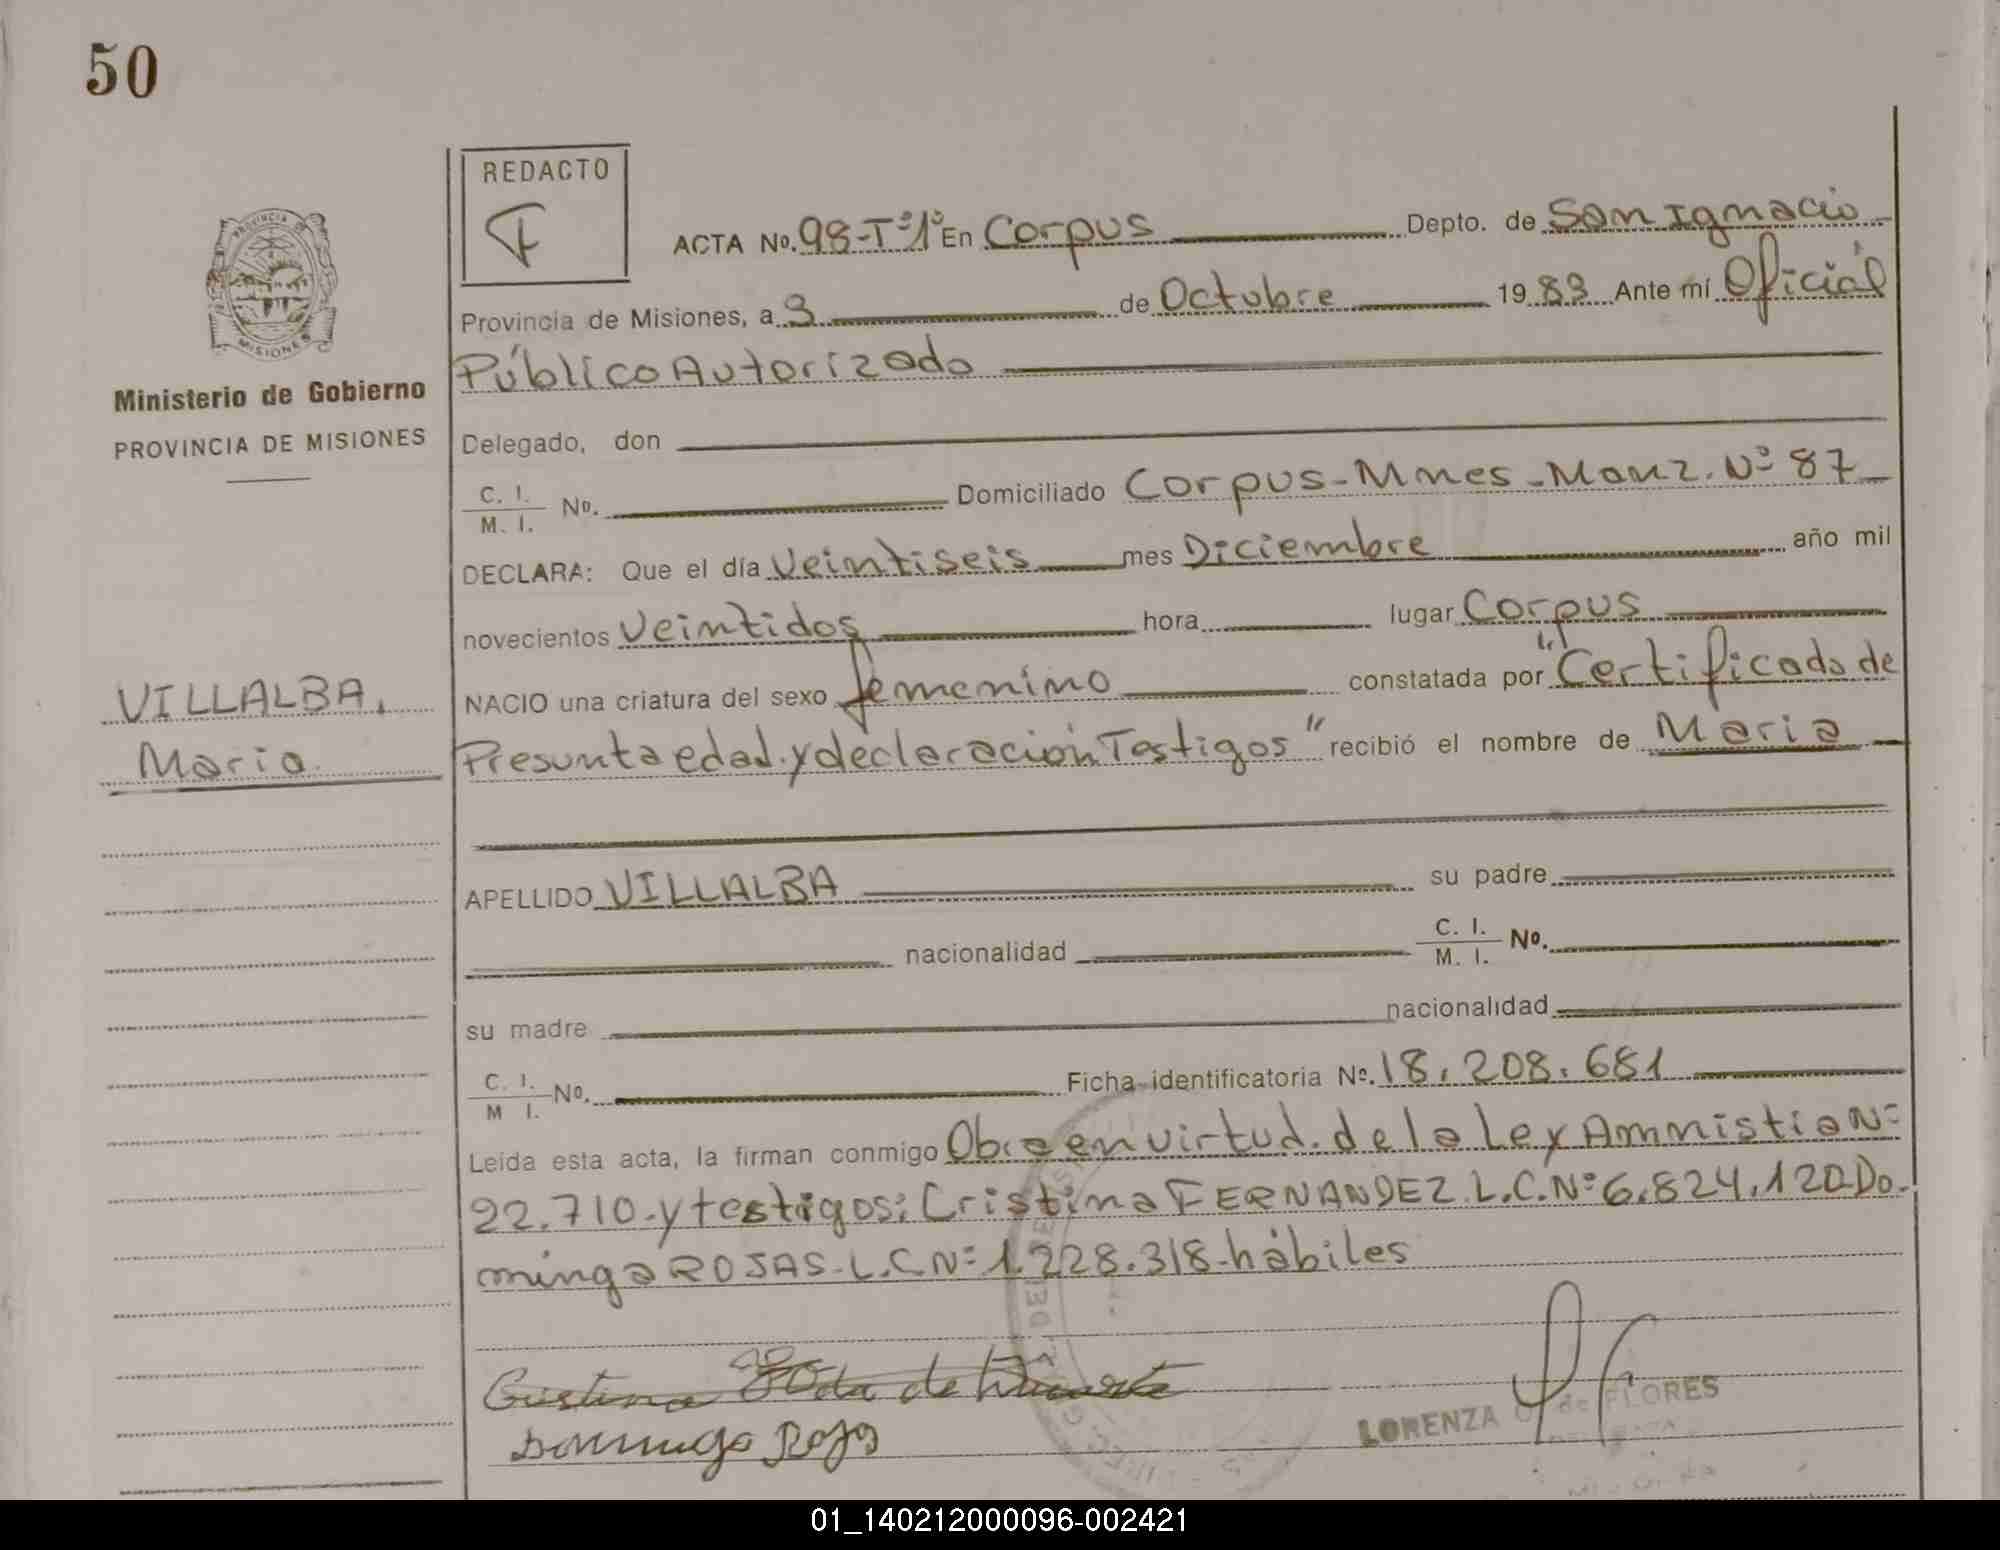 50
REDACTO
PROVINCIA DE
MISIONES
Ministerio de Gobierno
PROVINCIA DE MISIONES
ACTA No. 98-Tº1º En Corpus Depto. de San Ignacio
Provincia de Misiones, a 3 de Octubre 1983 Ante mí Oficial
Público Autorizado
Delegado, don
C. I.
M. I. No. Domiciliado Corpus-Mnes-Manz. Nº 87
DECLARA: Que el día Veintiseis mes Diciembre año mil
novecientos Veintidos hora lugar Corpus
VILLALBA,
Maria
NACIO una criatura del sexo femenino constatada por "Certificado de
Presunta edad y declaración Testigos" recibió el nombre de Maria
APELLIDO VILLALBA su padre
nacionalidad C. I.
M. I. No.
su madre nacionalidad
C. I.
M I. No. Ficha identificatoria No. 18.208.681
Leída esta acta, la firman conmigo Obra en virtud de la Ley Amnistia Nº
22.710-y testigos: Cristina FERNANDEZ L.C.Nº 6.824.120-Do-
minga ROJAS-L.C.Nº 1.228.318-hábiles
Cristina
Dominga Rojas
LORENZA de FLORES
01_140212000096-002421